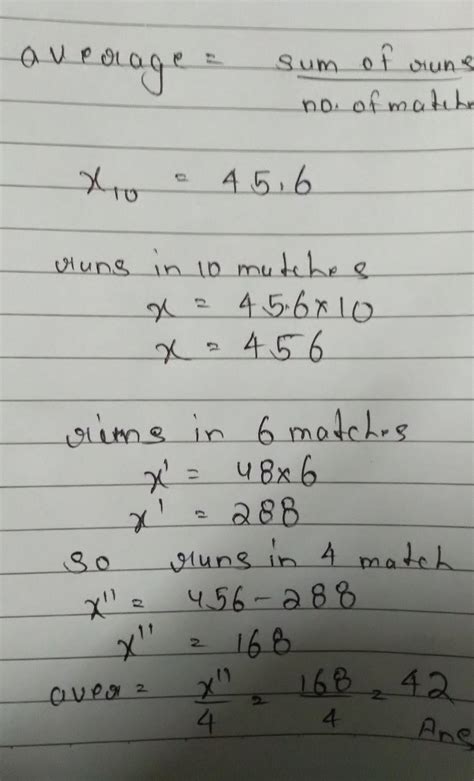 average = sum of runs
no. of match
x10 = 45.6
runs in 10 matches
x = 45.6x10
x = 456
runs in 6 matches
x' = 48x6
x' = 288
so runs in 4 match
x'' = 456-288
x'' = 168
aver = x''/4 = 168/4 = 42
Ans